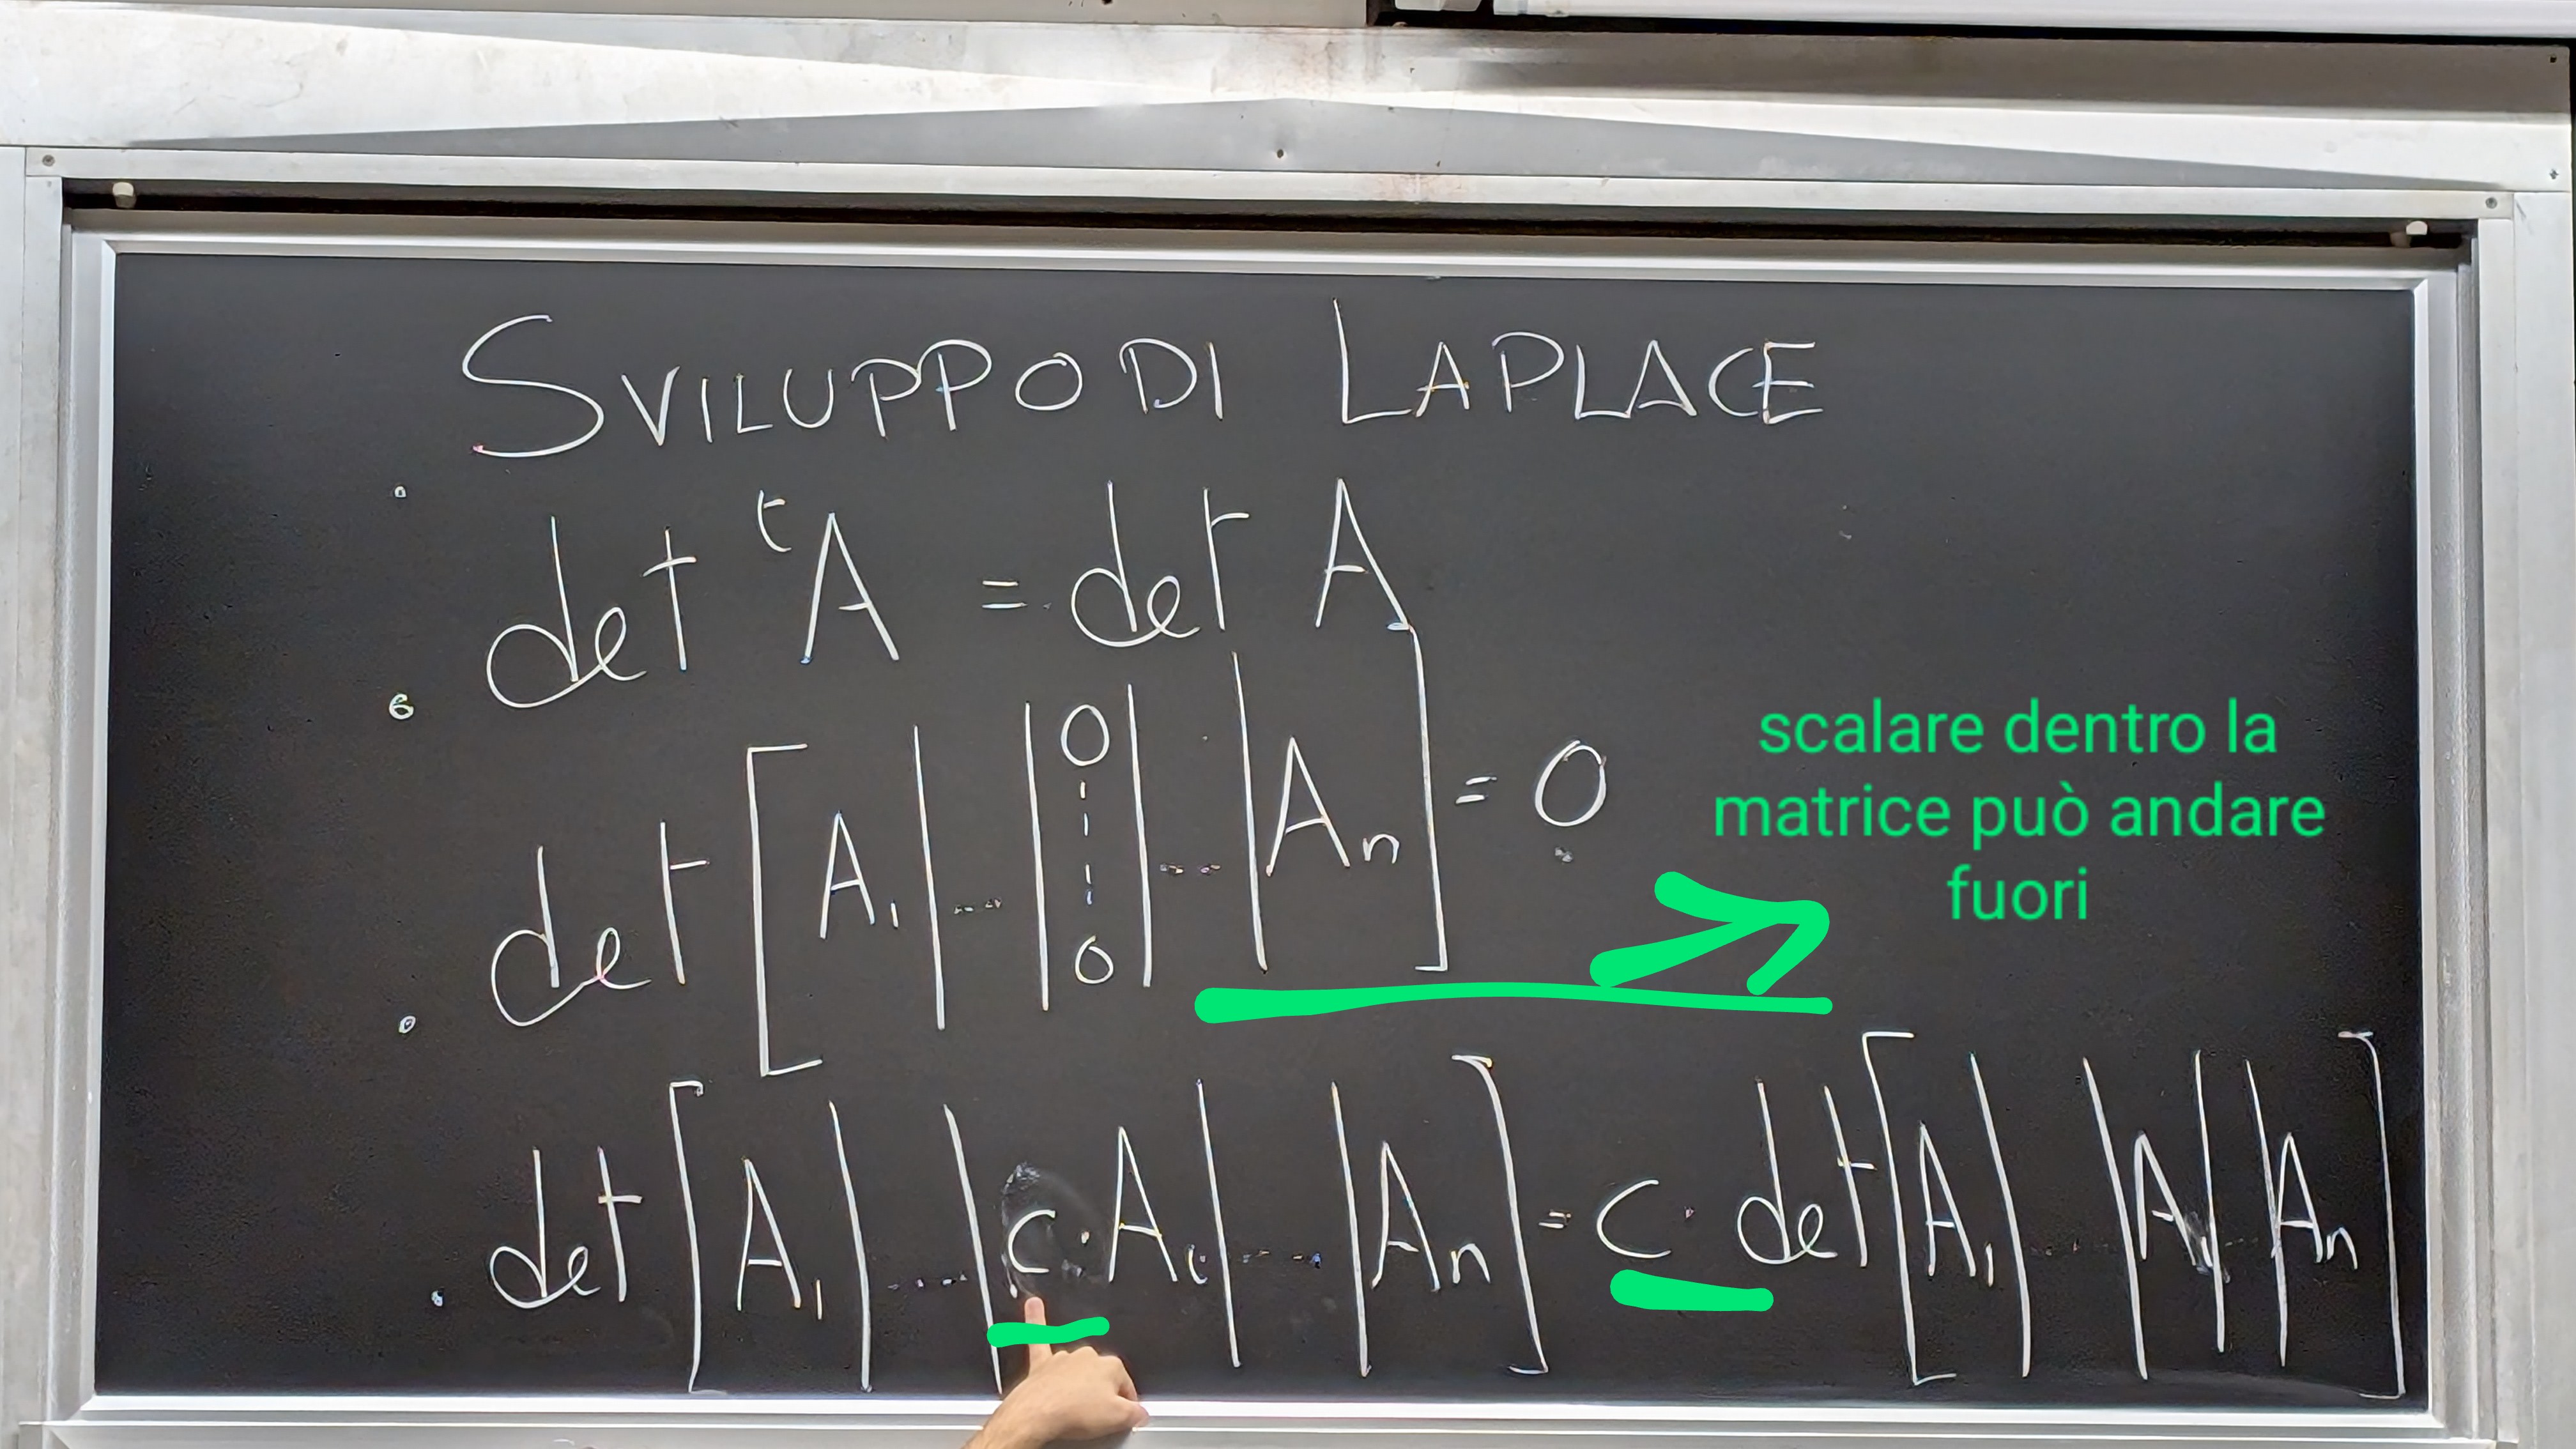 SVILUPPO DI LAPLACE
det ᵗA = det A
det [A₁|...|0 ¦ 0|...|Aₙ] = 0
scalare dentro la
matrice può andare
fuori
det [A₁|....|c·Aᵢ|....|Aₙ] = c · det [A₁|....|Aᵢ|Aₙ]